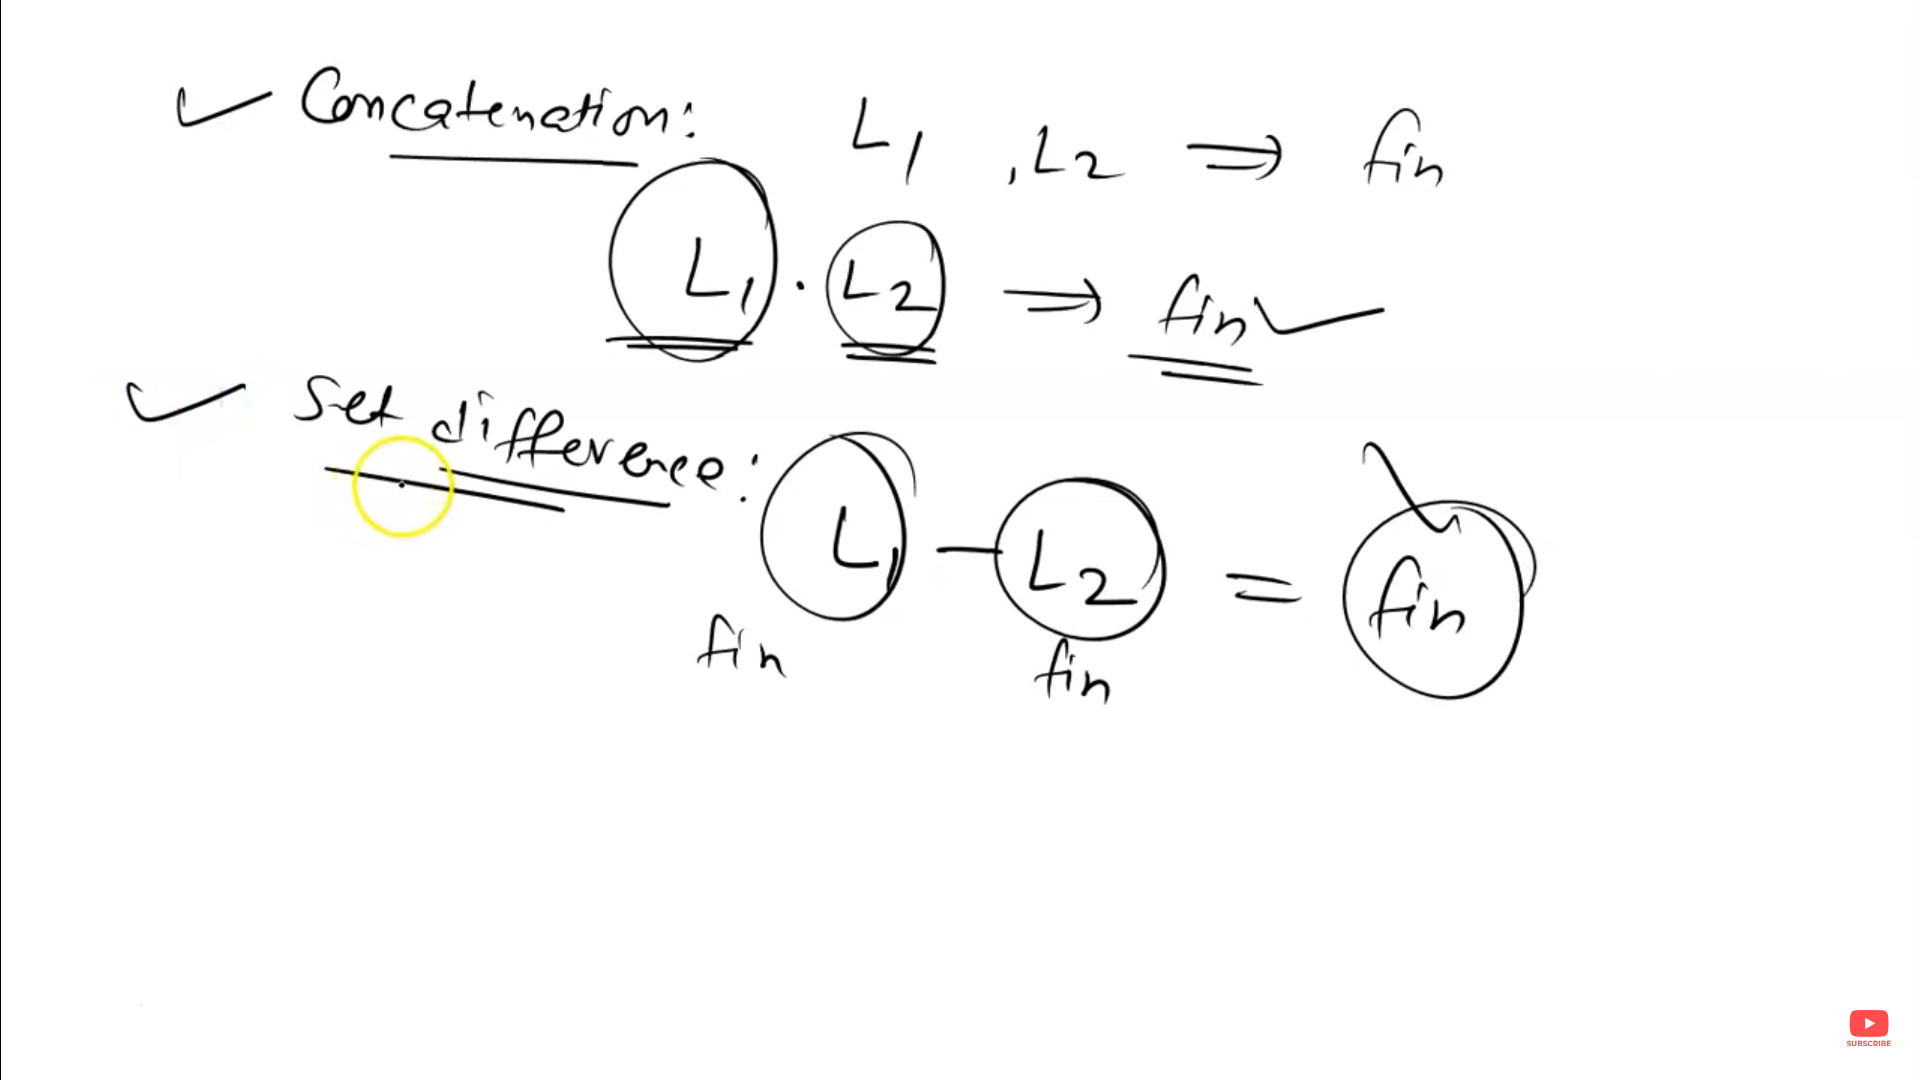 Concatenation: L1 , L2 ⇒ fin
L1 . L2 ⇒ fin
Set difference: L1 - L2 = fin
fin fin
SUBSCRIBE